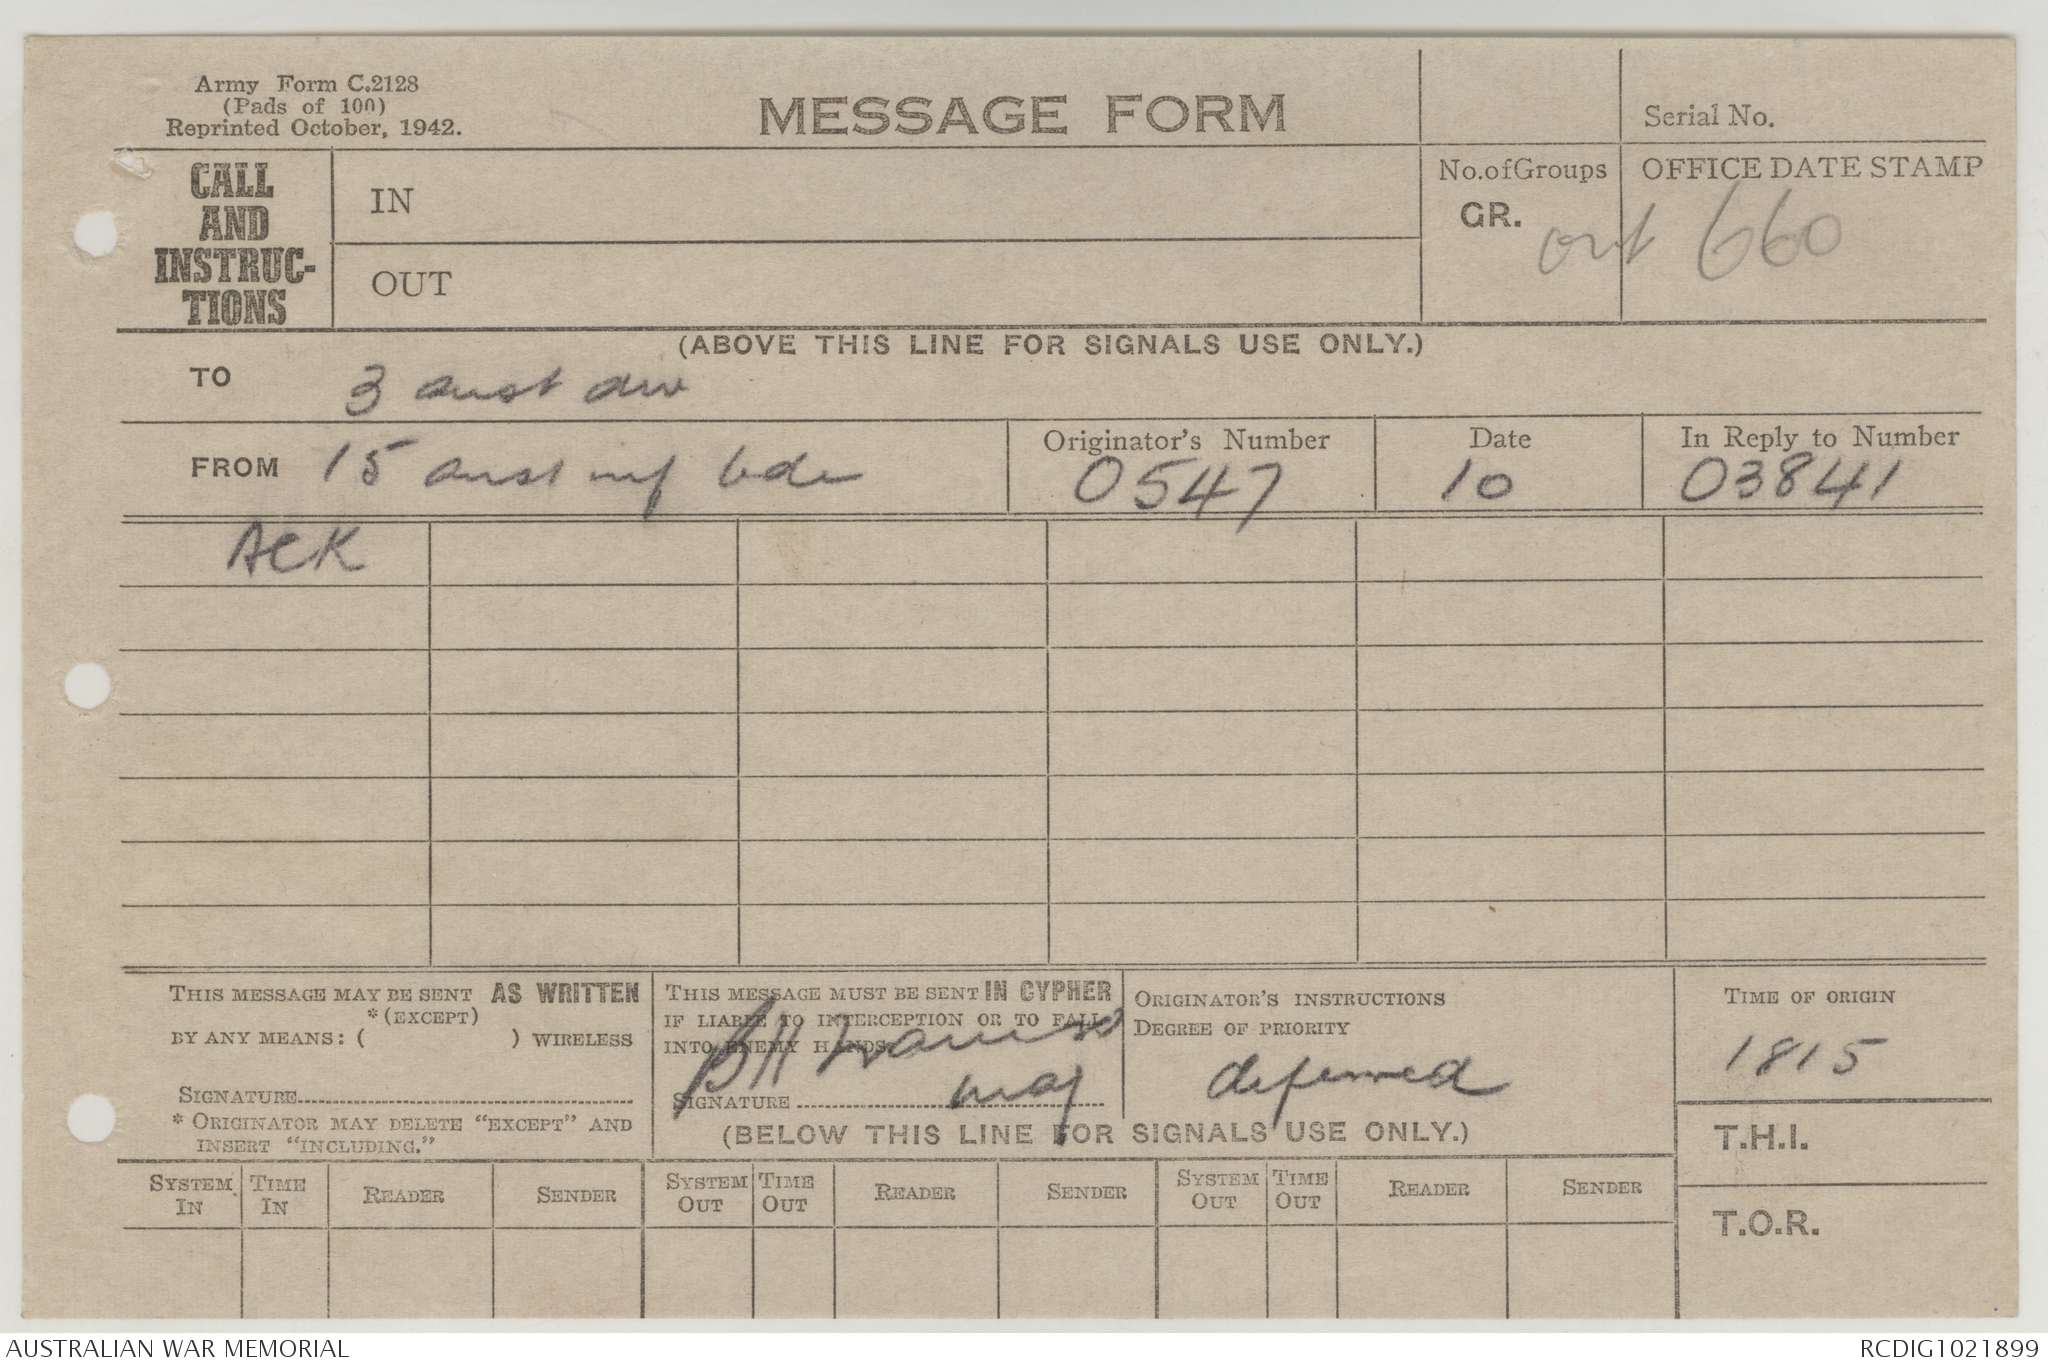 Army Form C.2128
(Pads of 100)
Reprinted October, 1942.
MESSAGE FORM
Serial No.
CALL
AND
INSTRUC-
TIONS
IN
OUT
No. of Groups
GR.
OFFICE DATE STAMP
out 660
(ABOVE THIS LINE FOR SIGNALS USE ONLY.)
TO 3 aust div
FROM 15 aust inf bde
Originator's Number
0547
Date
10
In Reply to Number
03841
ACK
THIS MESSAGE MAY BE SENT AS WRITTEN
*(EXCEPT)
BY ANY MEANS: ( ) WIRELESS
SIGNATURE
* ORIGINATOR MAY DELETE "EXCEPT" AND
INSERT "INCLUDING."
THIS MESSAGE MUST BE SENT IN CYPHER
IF LIABLE TO INTERCEPTION OR TO FALL
INTO ENEMY HANDS.
BH
maj
SIGNATURE
ORIGINATOR'S INSTRUCTIONS
DEGREE OF PRIORITY
deferred
TIME OF ORIGIN
1815
T.H.I.
T.O.R.
(BELOW THIS LINE FOR SIGNALS USE ONLY.)
SYSTEM IN TIME IN READER SENDER SYSTEM OUT TIME OUT READER SENDER SYSTEM OUT TIME OUT READER SENDER
AUSTRALIAN WAR MEMORIAL
RCDIG1021899